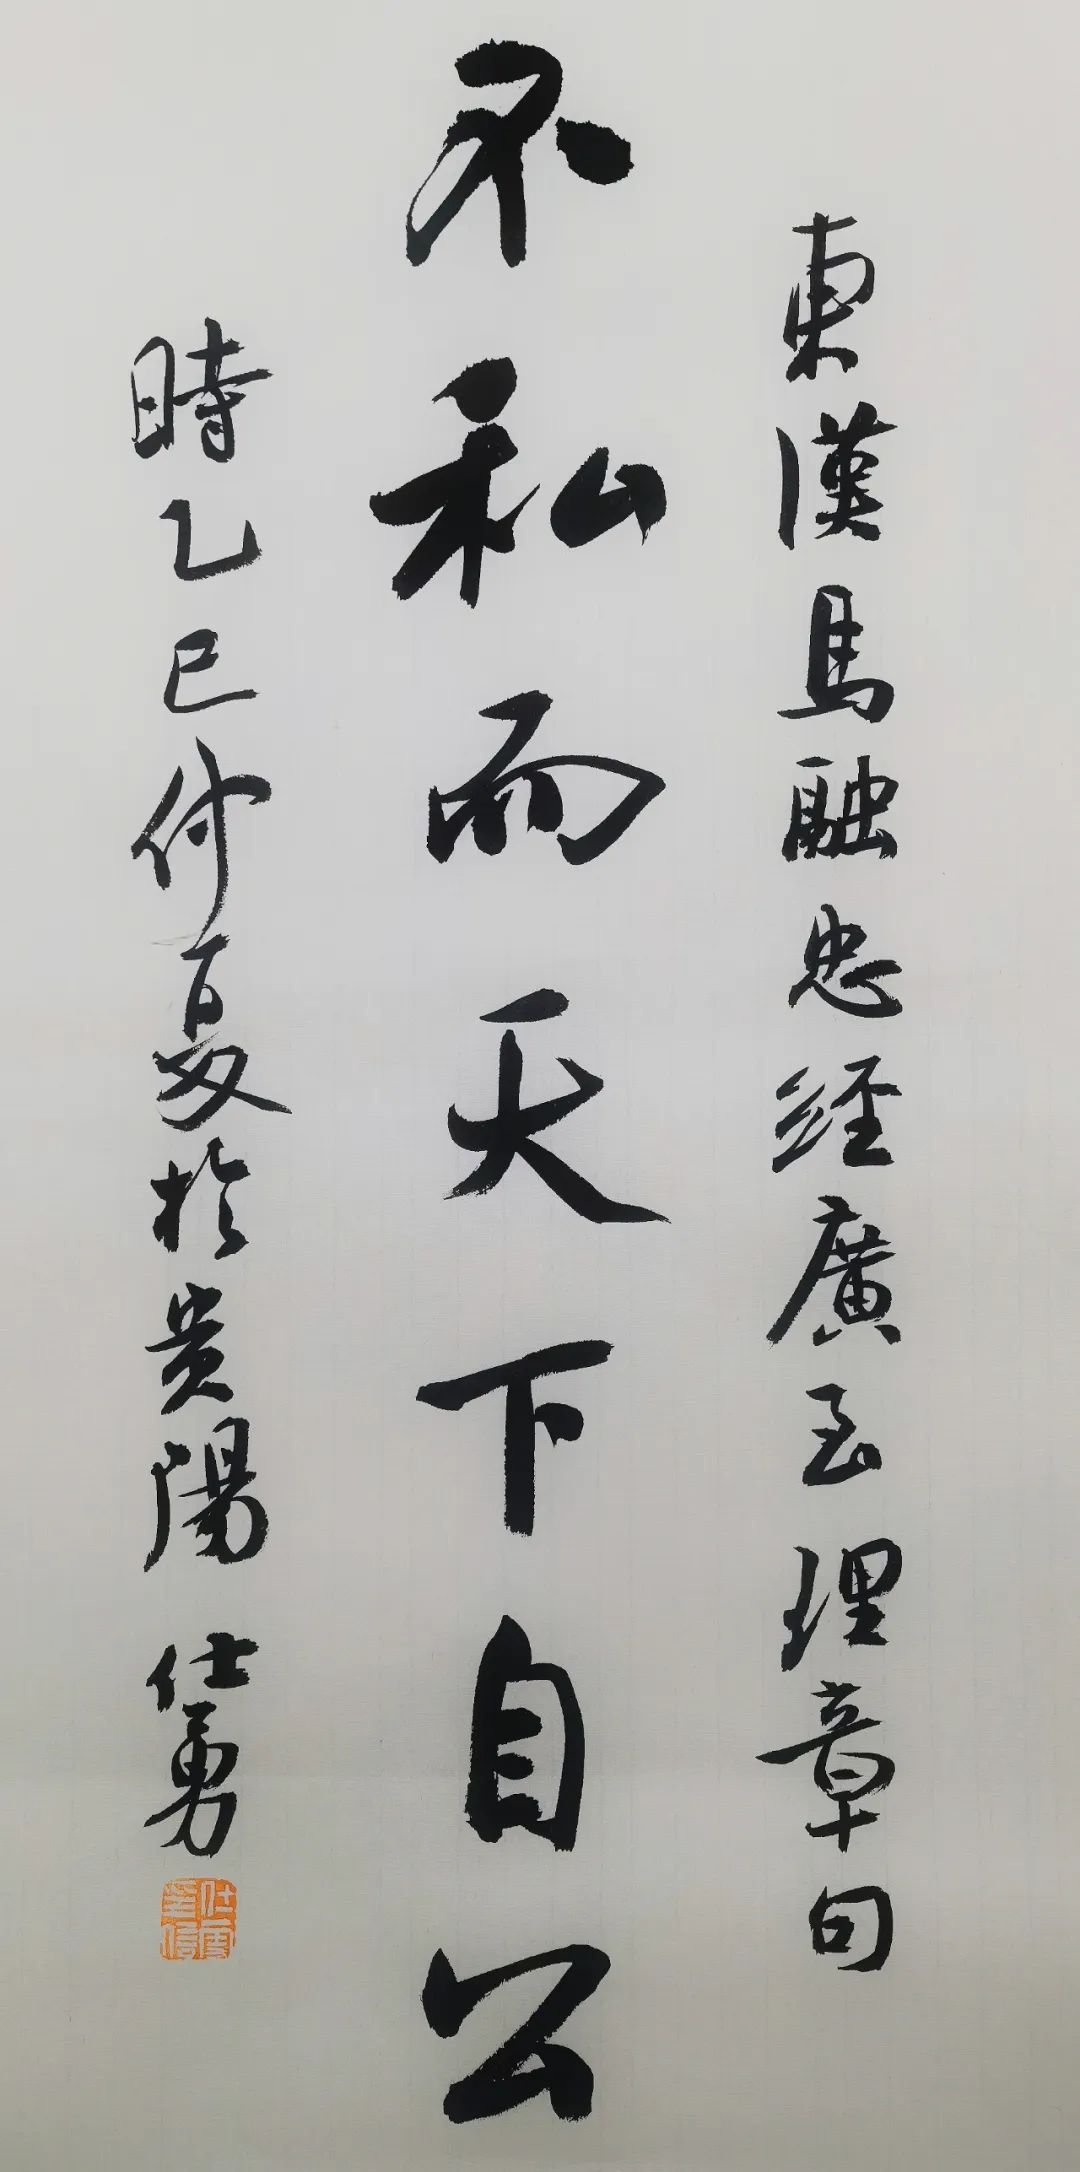 東漢馬融忠經廣至理章句
不私而天下自公
時乙巳仲夏於贵陽 仕勇